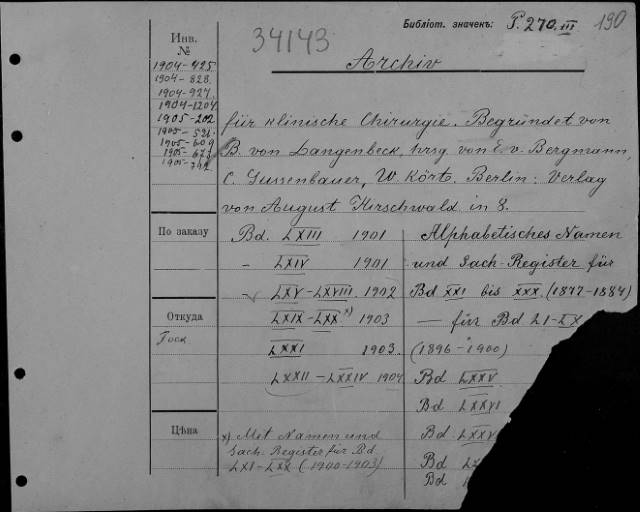 Библіот. значекъ: P. 270.III
190
34143
Archiv
Инв.
№
1904-425
1904-828
1904-927
1904-1204
1905-202
1905-609
für klinische Chirurgie. Begründet von
B. von Langenbeck, hrsg von E. v. Bergmann,
C. Gussenbauer, W. Körte. Berlin: Verlag
von August Hirschwald in 8.
По заказу
Откуда
Госк
Цѣна
Bd. LXIII 1901
- LXIV 1901
- LXV-LXVIII 1902
LXIX-LXX x) 1903
LXXI 1903.
LXXII-LXXIV 1904
x) Mit Namen und
Sach-Register für Bd
LXI-LXX (1900-1903)
Alphabetisches Namen
und Sach-Register für
Bd XXI bis XXX. (1877-1884)
- für Bd LI-LX
(1896-1900)
Bd LXXV
Bd LXXVI
Bd
Bd
Bd